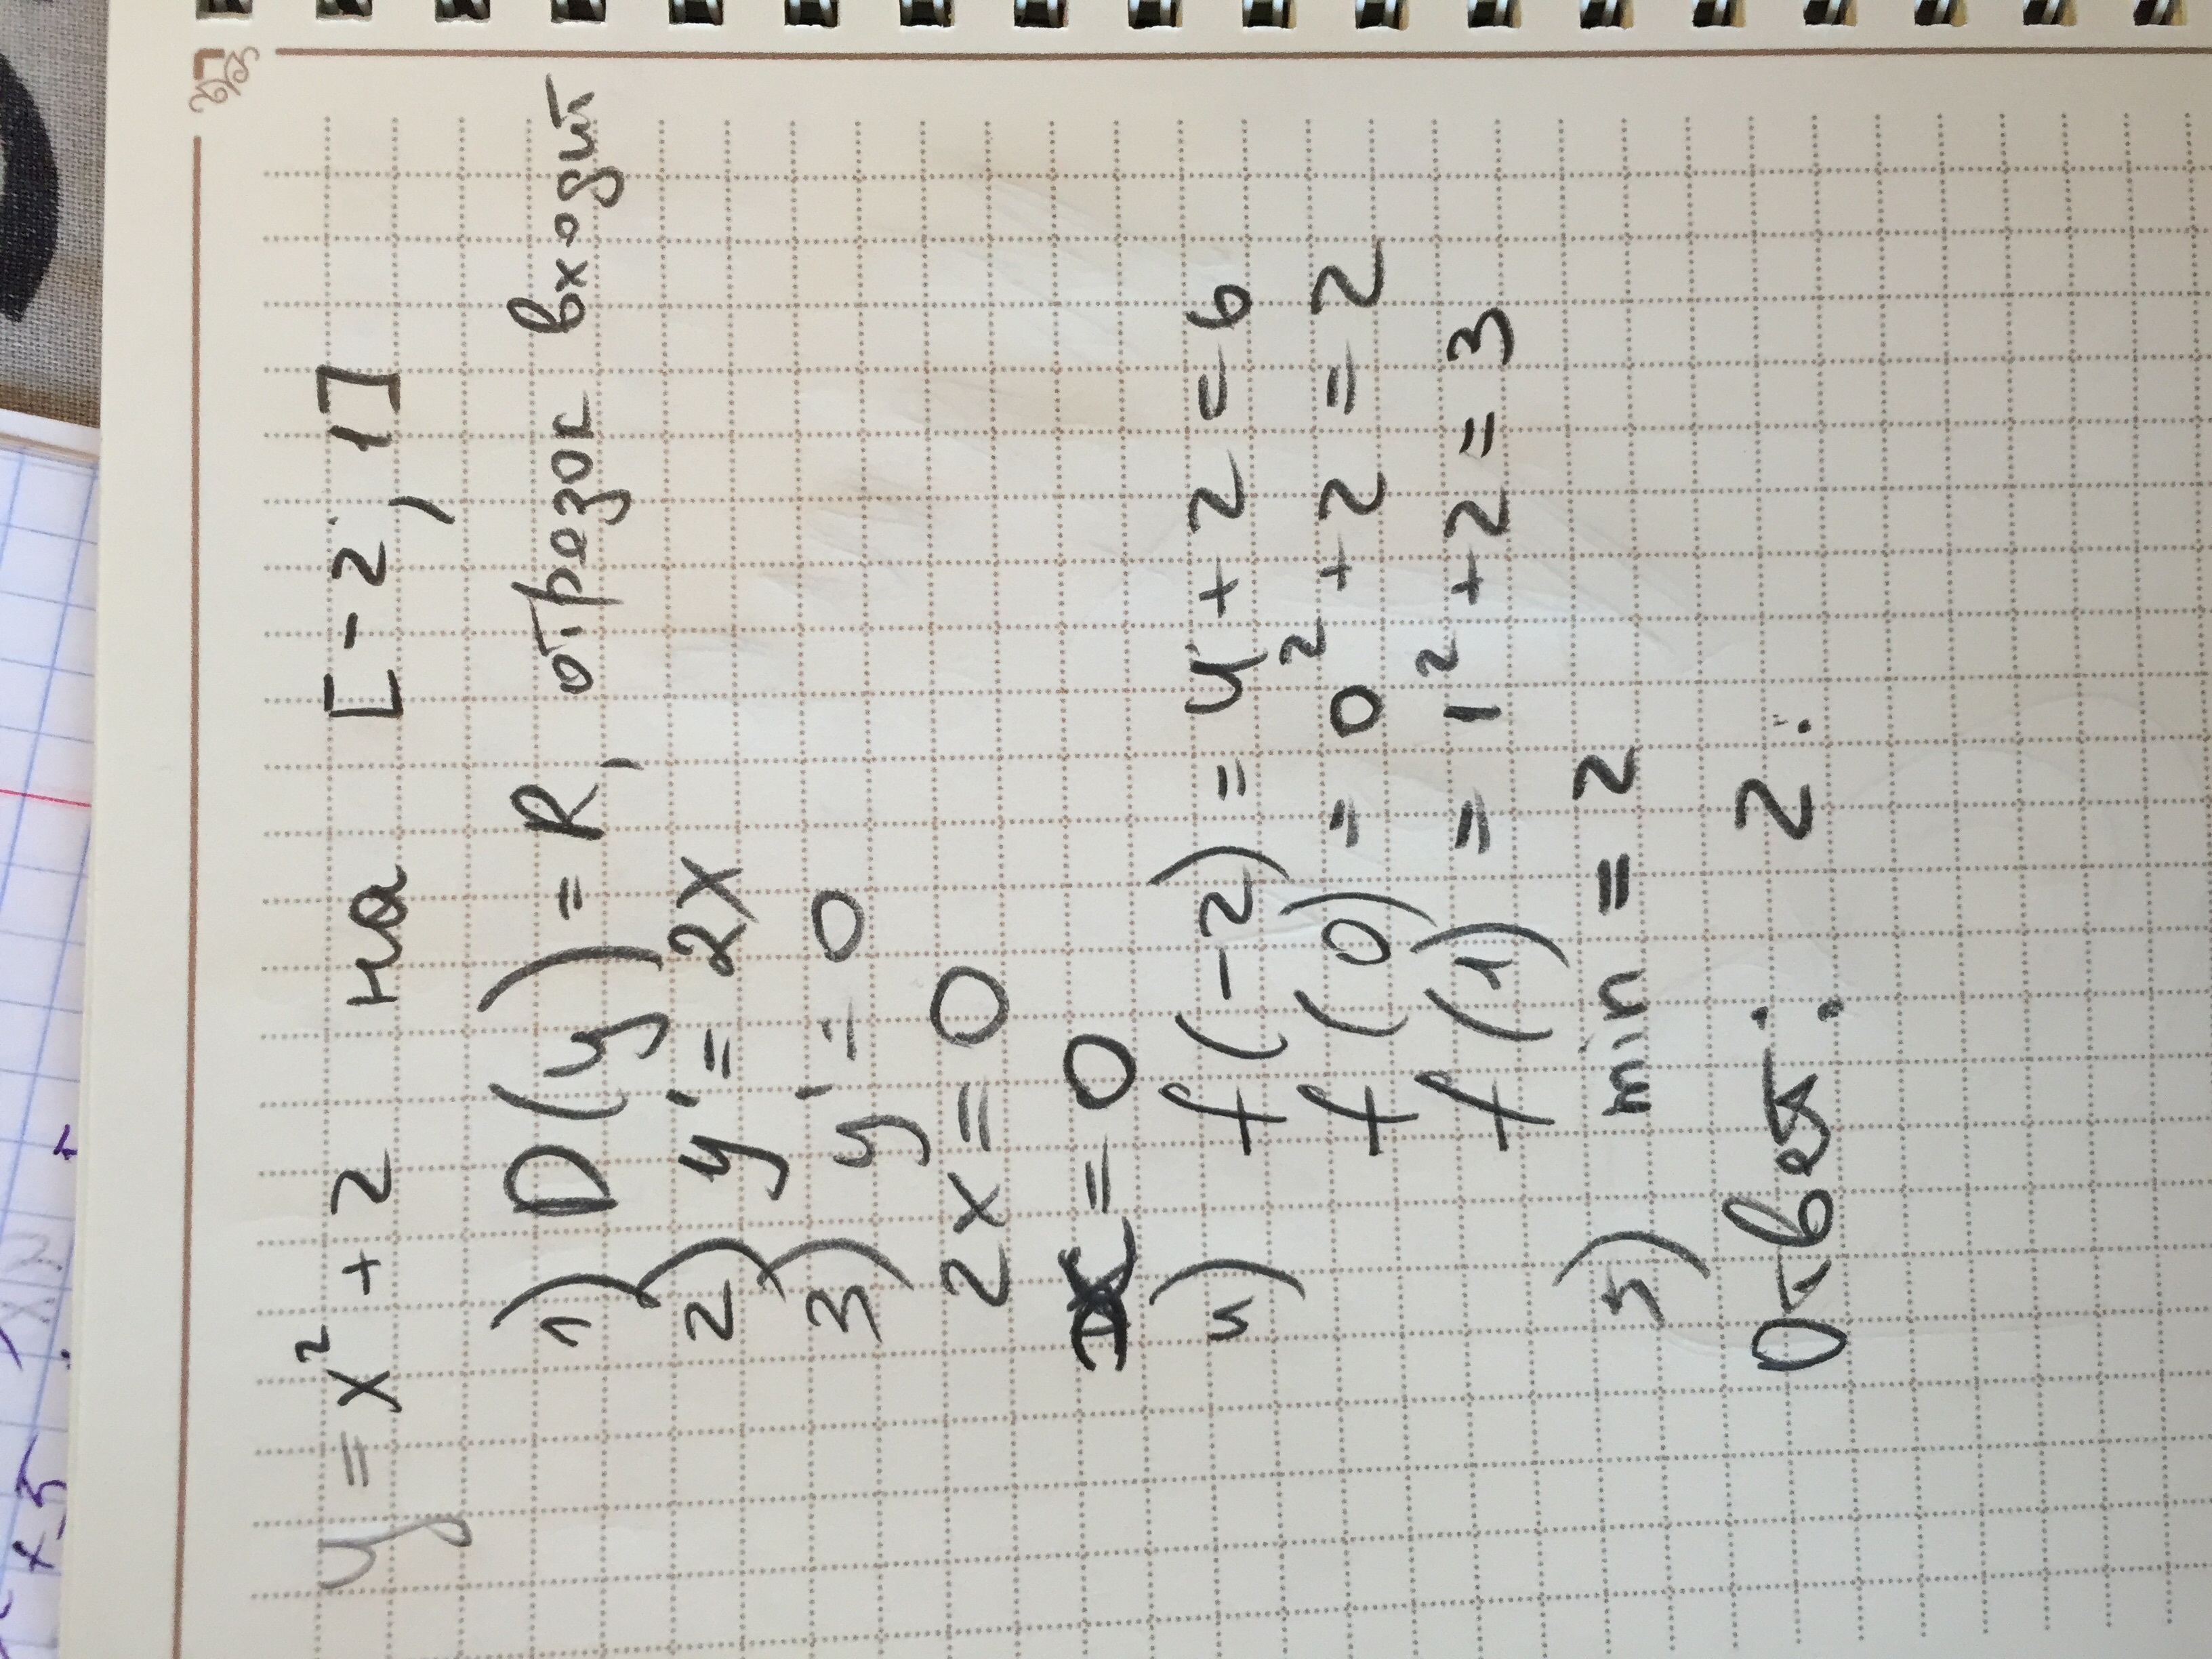 y = x² + 2 на [-2, 1]
1) D(y) = R, отрезок входит
2) y' = 2x
3) y' = 0
2x = 0
x = 0
4) f(-2) = 4 + 2 = 6
f(0) = 0² + 2 = 2
f(1) = 1² + 2 = 3
5) min = 2
Ответ: 2.